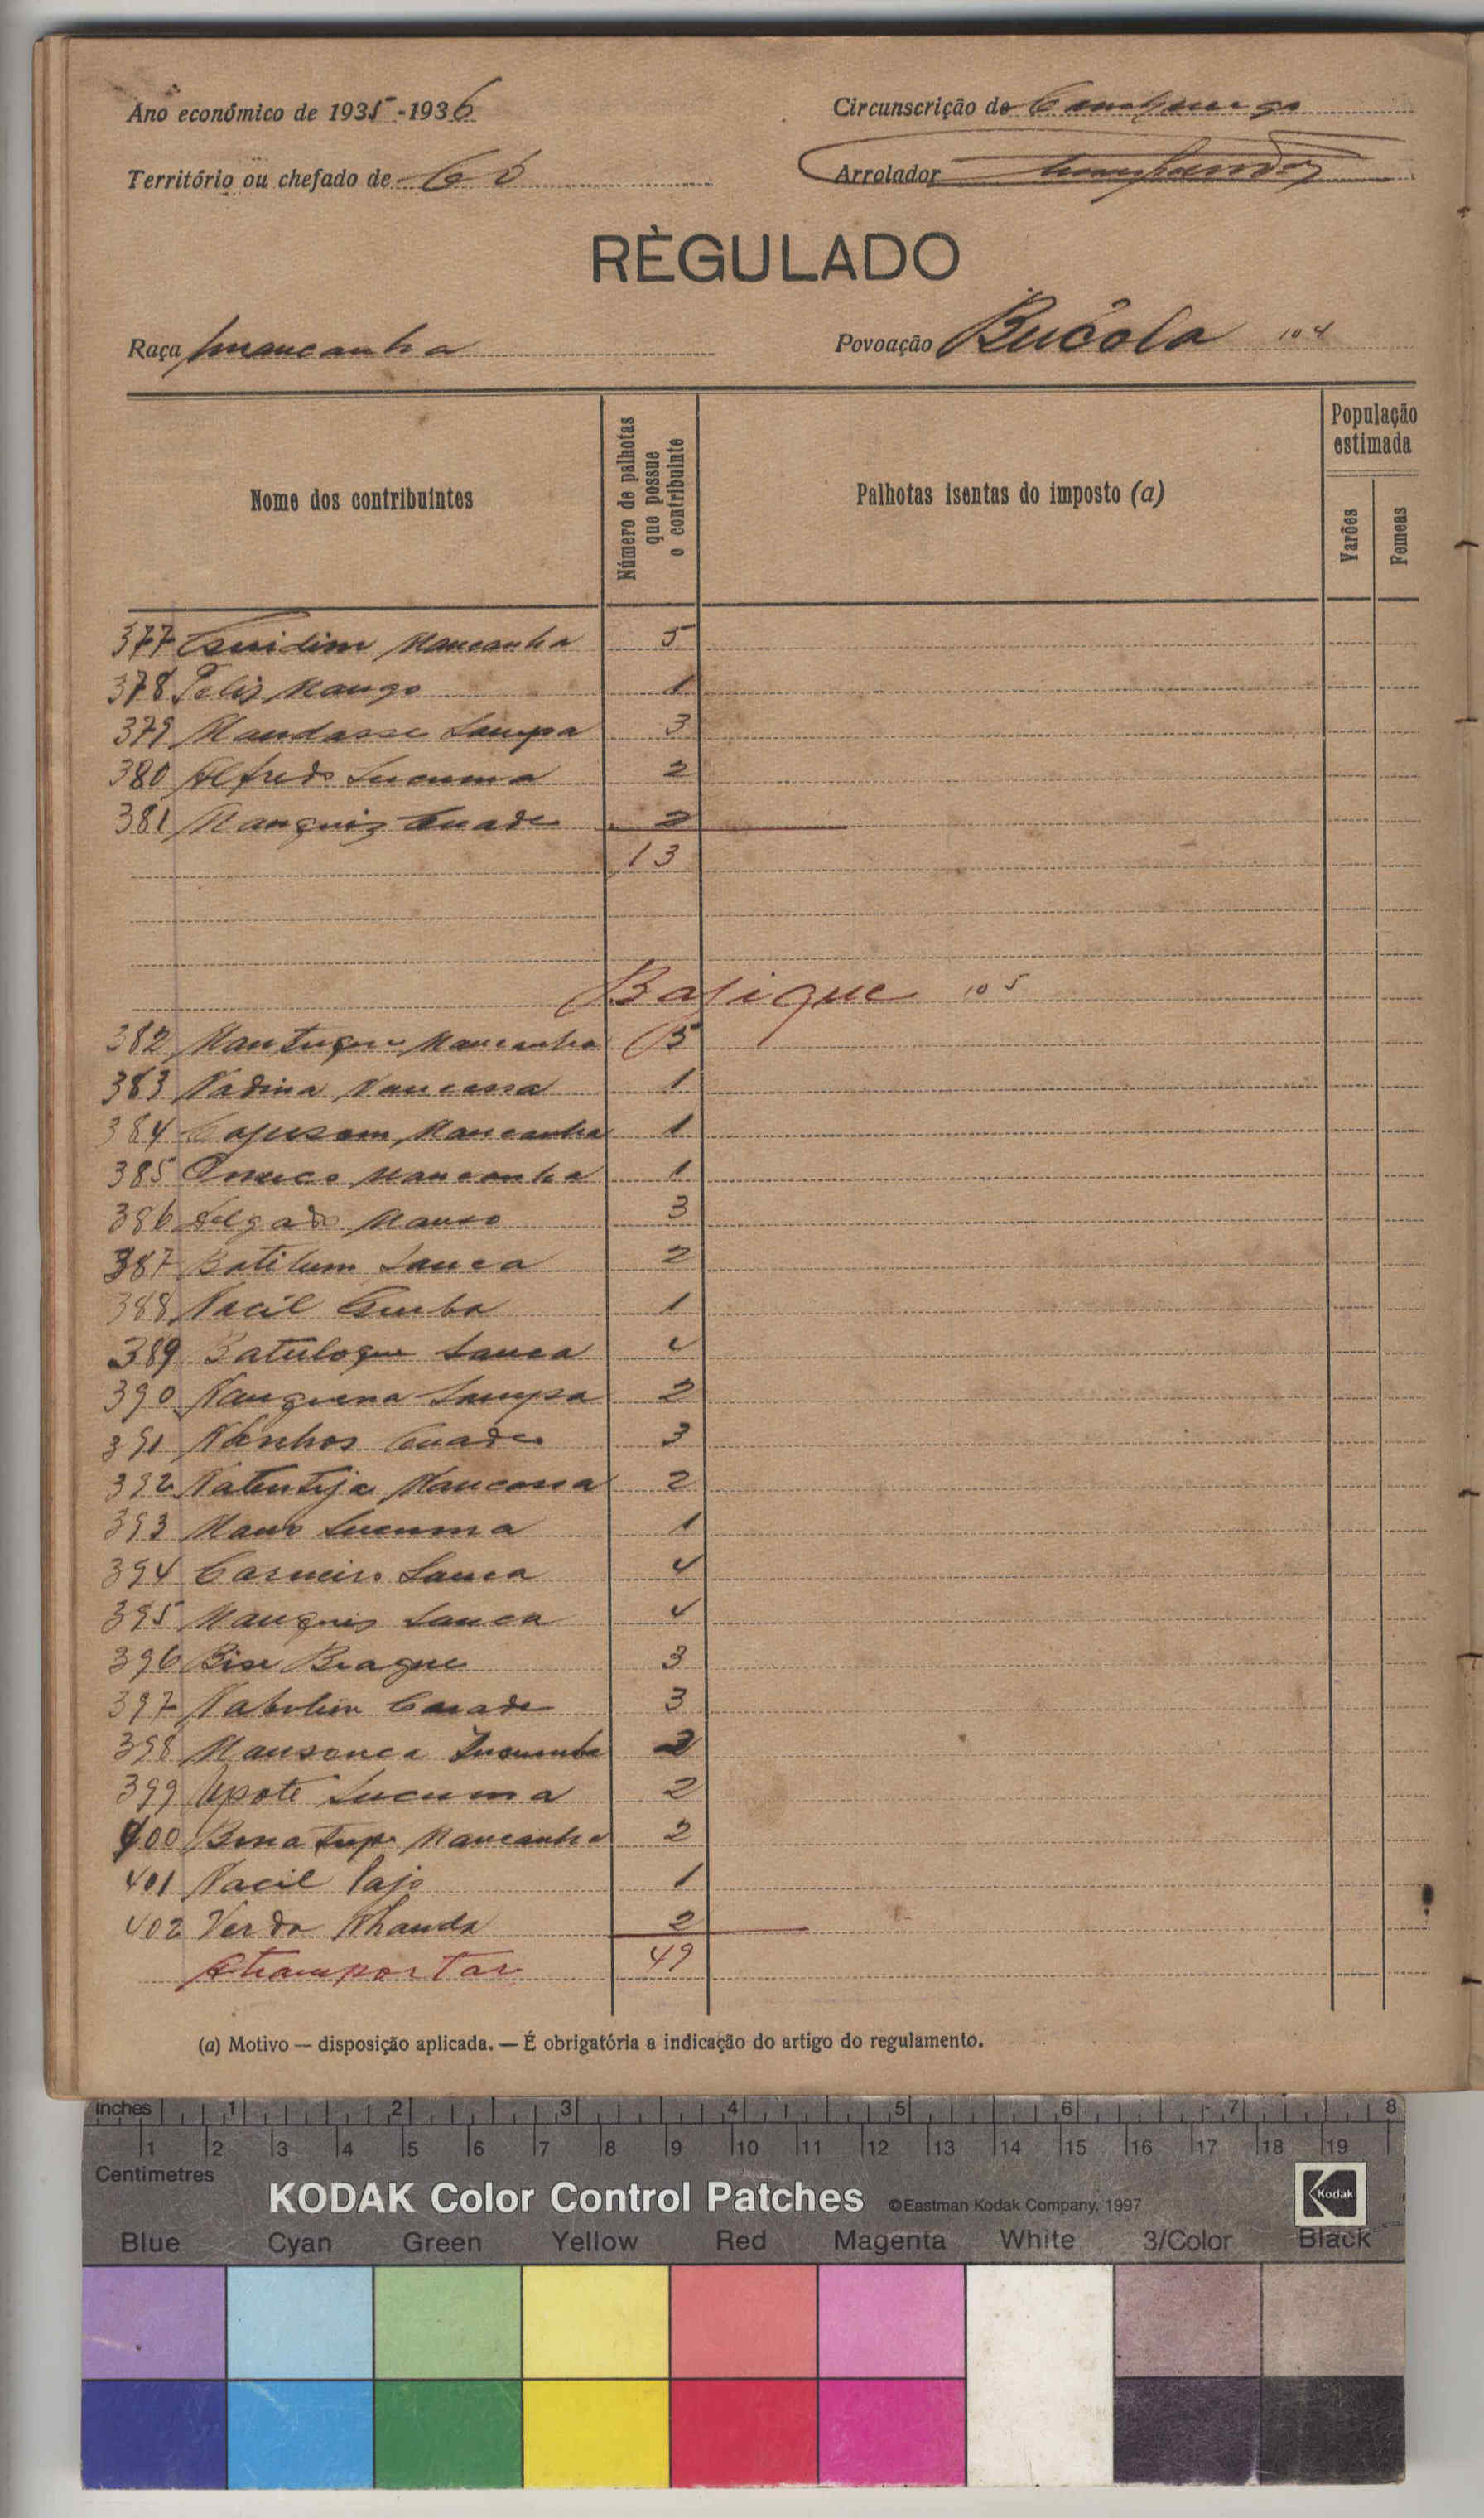 Ano económico de 1935-1936
Circunscrição de
Território ou chefado de Có
Arrolador
RÈGULADO
Raça mancanha
Povoação Bucóla 104
Nome dos contribuintes
Número de palhotas que possue o contribuinte
Palhotas isentas do imposto (a)
População estimada
Varões
Femeas
377 Mancanha 5
378 Felis Mango 1
379 Mandasse Sampa 3
380 Alfredo Lucuma 2
381 Manquis Cuade 2
13
Bajique 105
382 Mantuque Mancanha 5
383 Nadina Nancassa 1
384 Mancanha 1
385 Mancanha 1
386 Delgado Manso 3
387 Batilum Sanca 2
388 Nacil 1
389 Batuloque Sanca 4
390 Nanguena Sampa 2
391 Cuade 3
392 Natentija Mancassa 2
393 Mano Lucuma 1
394 Carneiro Sanca 4
395 Manquis Sanca 4
396 Bisa Biague 3
397 Nabolim Cuade 3
398 Mansonca
399 Upote Lucuma 2
400 Mancanha 2
401 Nacil Cajo 1
402 2
A transportar 49
(a) Motivo — disposição aplicada. — É obrigatória a indicação do artigo do regulamento.
Inches 1 2 3 4 5 6 7 8
1 2 3 4 5 6 7 8 9 10 11 12 13 14 15 16 17 18 19
Centimetres
KODAK Color Control Patches ©Eastman Kodak Company, 1997 Kodak
Blue Cyan Green Yellow Red Magenta White 3/Color Black